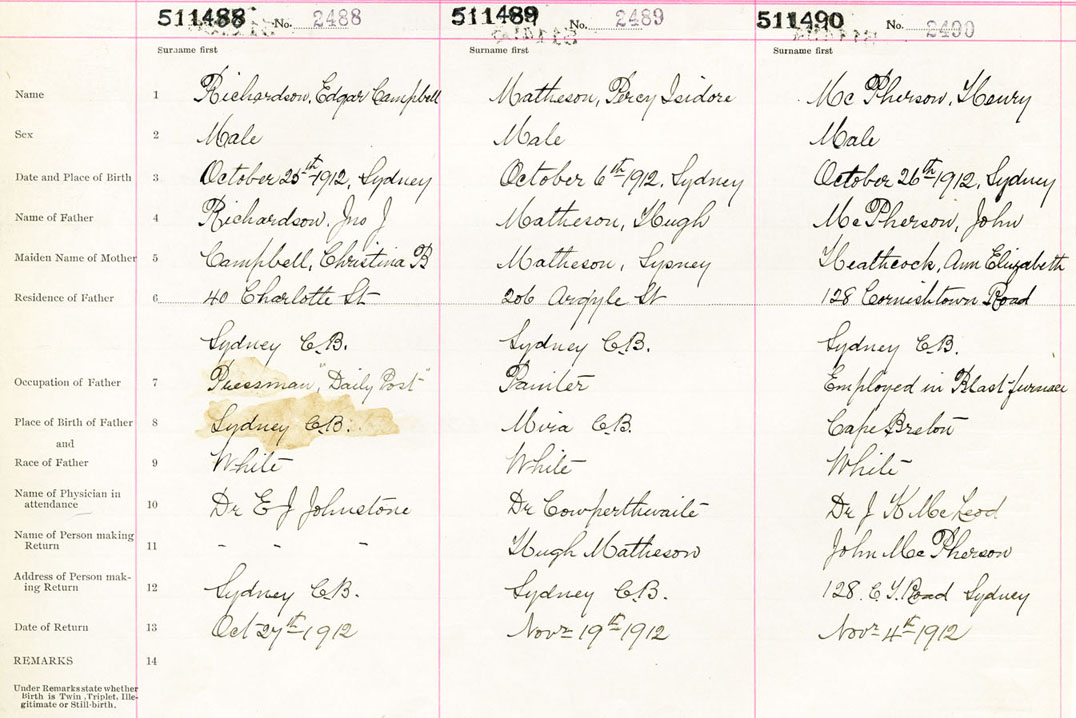 511488 No. 2488 511489 No. 2489 511490 No. 2490
Surname first Surname first Surname first
Name 1 Richardson, Edgar Campbell Matheson, Percy Isidore Mc Pherson, Henry
Sex 2 Male Male Male
Date and Place of Birth 3 October 25th 1912, Sydney October 6th 1912, Sydney October 26th 1912, Sydney
Name of Father 4 Richardson, Jno J Matheson, Hugh McPherson, John
Maiden Name of Mother 5 Campbell, Christina B Matheson, Sydney Heathcock, Ann Elizabeth
Residence of Father 6 40 Charlotte St 206 Argyle St 128 Cornishtown Road
Sydney C.B. Sydney C.B. Sydney C.B.
Occupation of Father 7 Pressman, "Daily Post" Painter Employed in Blast furnace
Place of Birth of Father 8 Sydney C.B. Mira C.B. Cape Breton
and
Race of Father 9 White White White
Name of Physician in
attendance 10 Dr E J Johnstone Dr Cowperthwaite Dr J K McLeod
Name of Person making
Return 11 - - - Hugh Matheson John McPherson
Address of Person mak-
ing Return 12 Sydney C.B. Sydney C.B. 128 C.T. Road Sydney
Date of Return 13 Oct 27th 1912 Novr 19th 1912 Novr 4th 1912
REMARKS 14
Under Remarks state whether
Birth is Twin, Triplet, Ille-
gitimate or Still-birth.